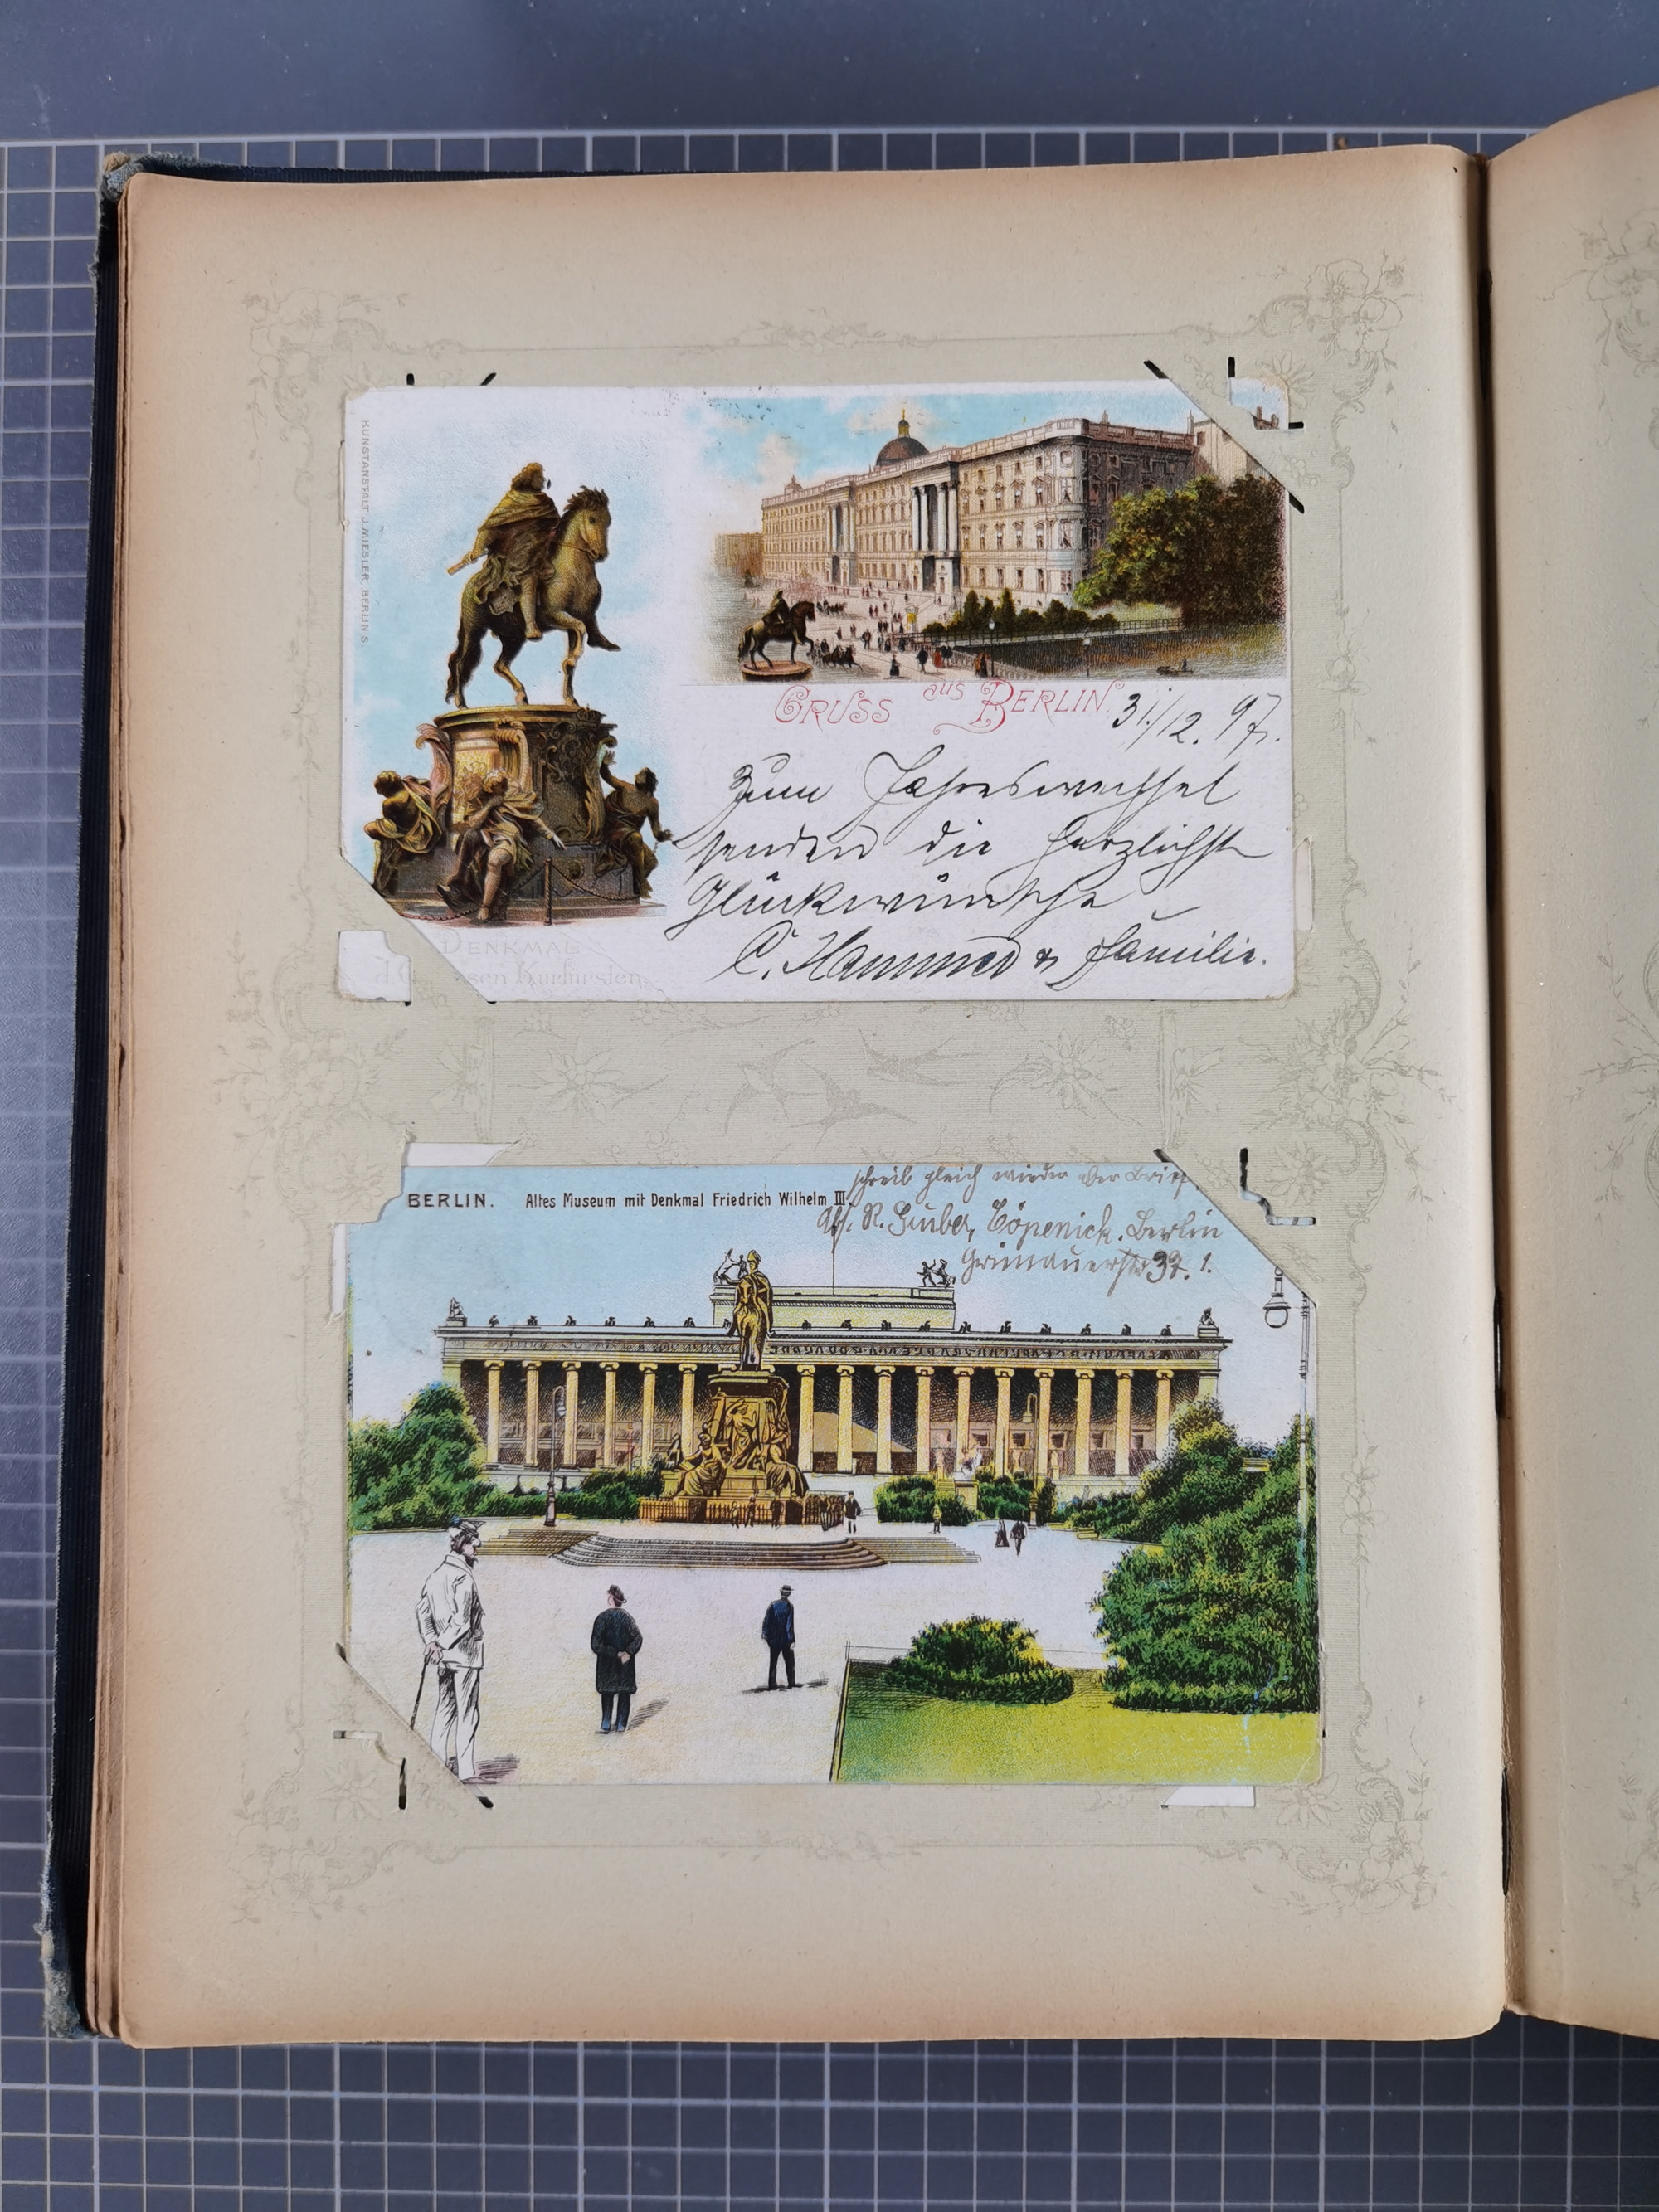 KUNSTANSTALT J. MIESLER, BERLIN S.
GRUSS aus BERLIN.
31./12. 97.
Zum Jahreswechsel
senden die herzlichsten
Glückwünsche
C. Hammer & Familie.
DENKMAL
sen Kurfürsten
BERLIN. Altes Museum mit Denkmal Friedrich Wilhelm III.
schreib gleich wieder aber Brief.
Abs. R. Gruber, Cöpenick. Berlin
Grünauerstr 37. 1.